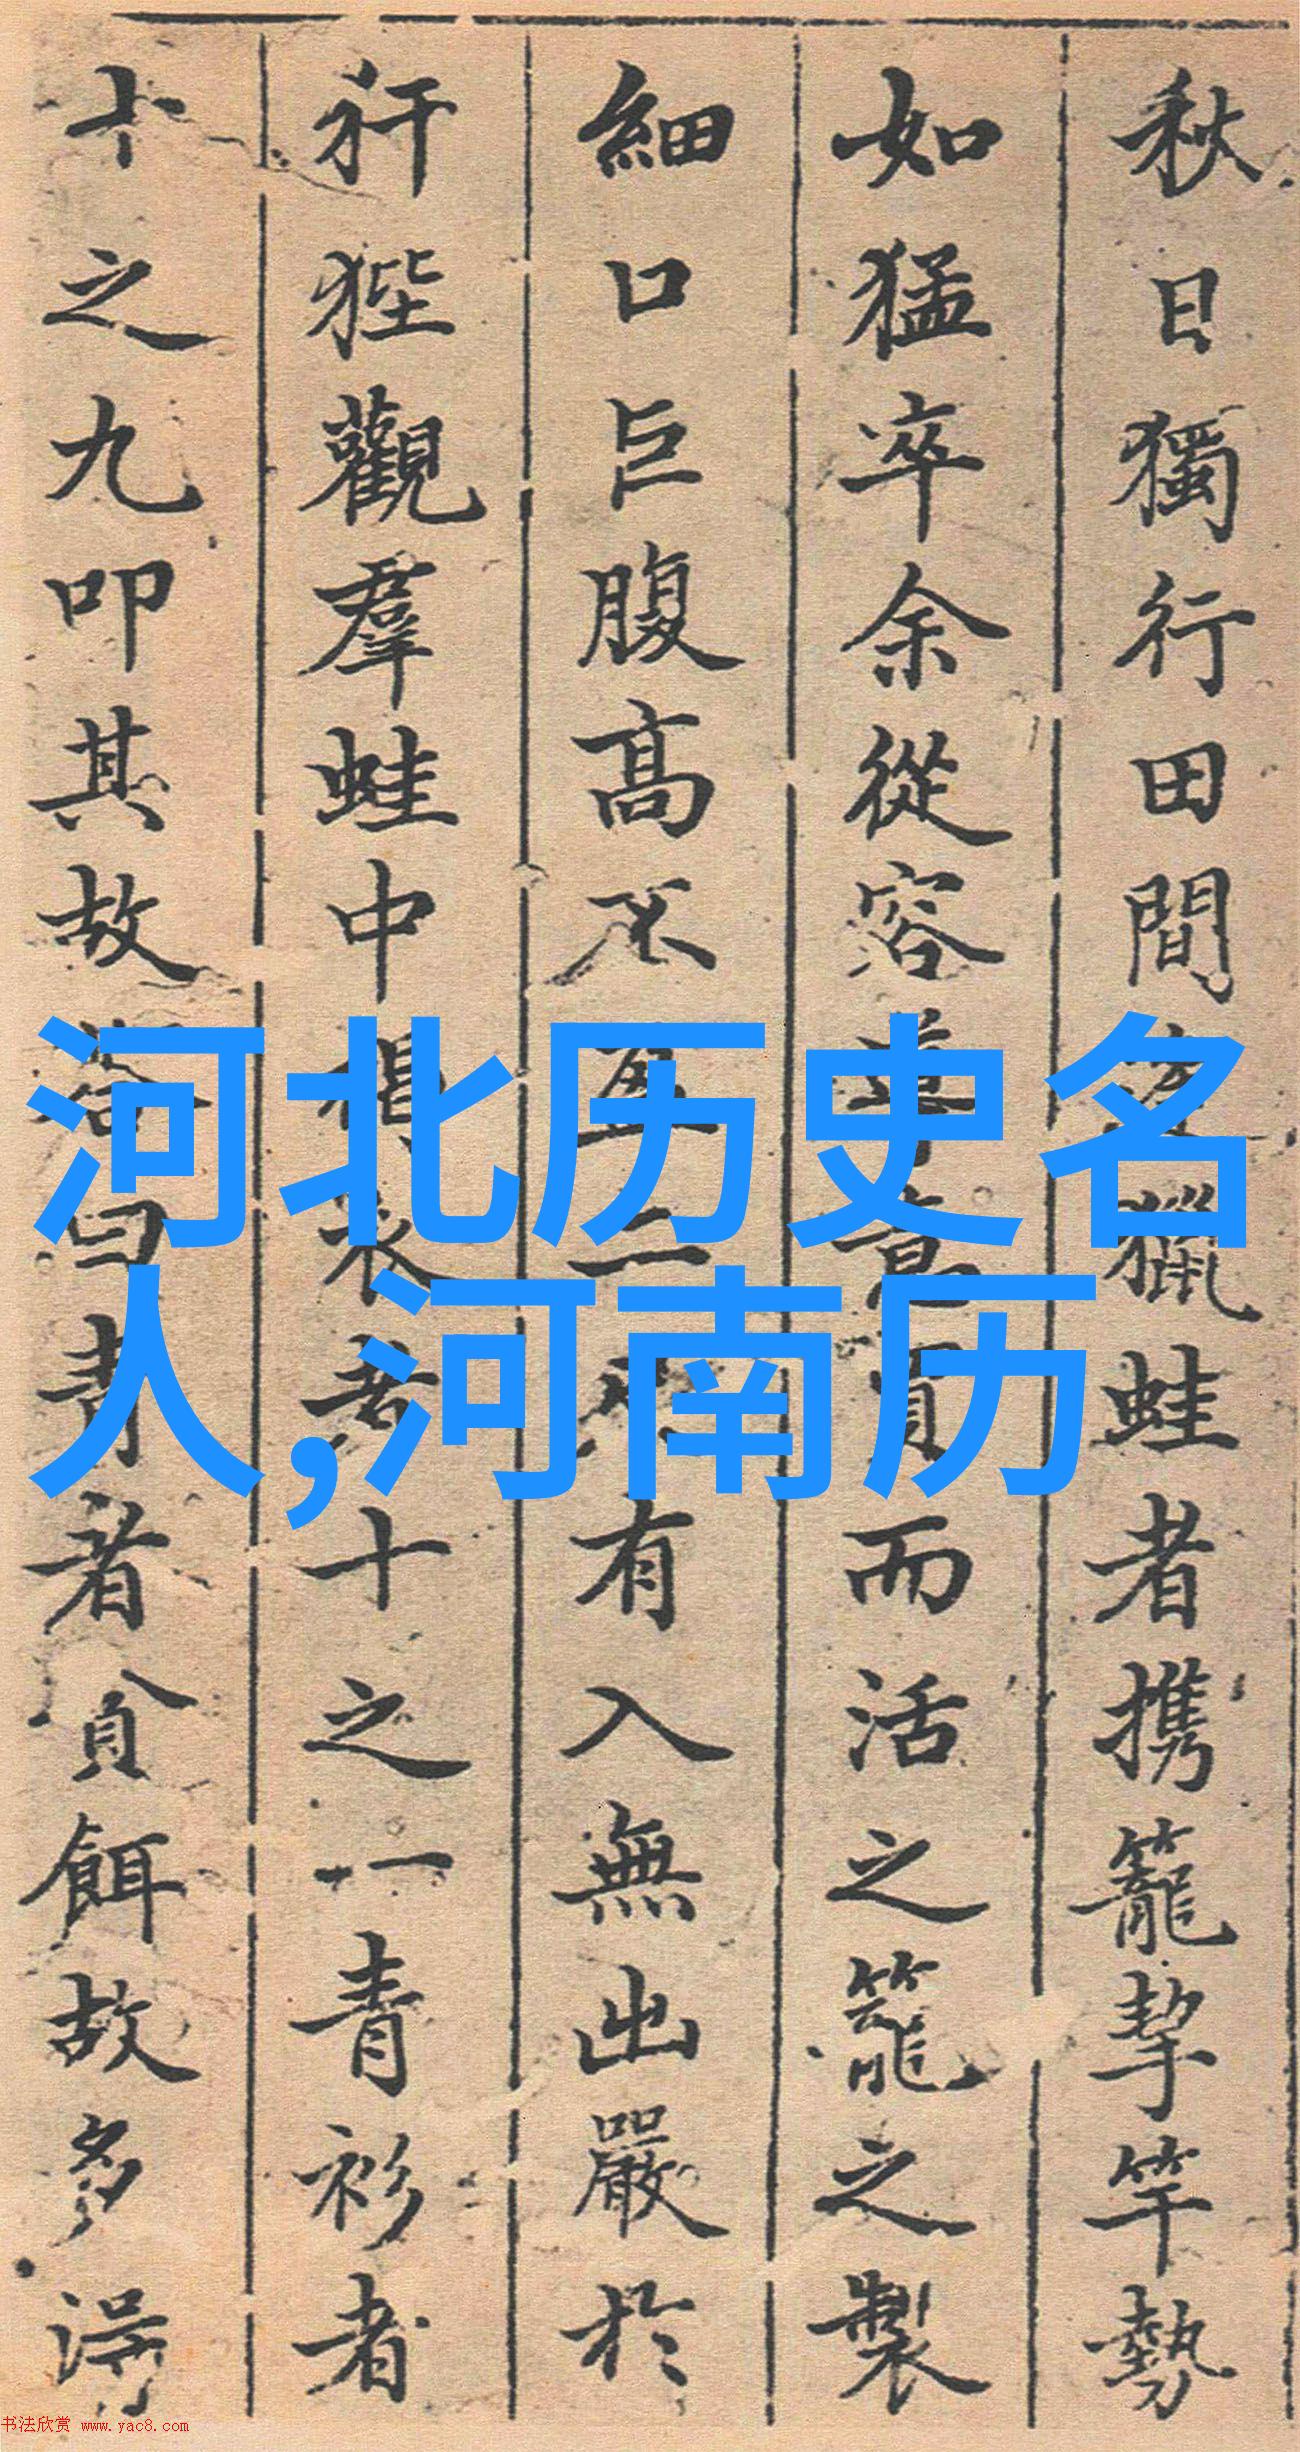 秋日獨行田間
獵蛙者携籠挈竿勢
如猛卒余從容
而活之籠之製
細口巨腹高不
有入無出嚴於
犴狴觀羣蛙中
十之一青衫者
十之九叩其故
曰青者貪餌故多得
河北历史名
人,河南历
书法欣赏 www.yac8.com